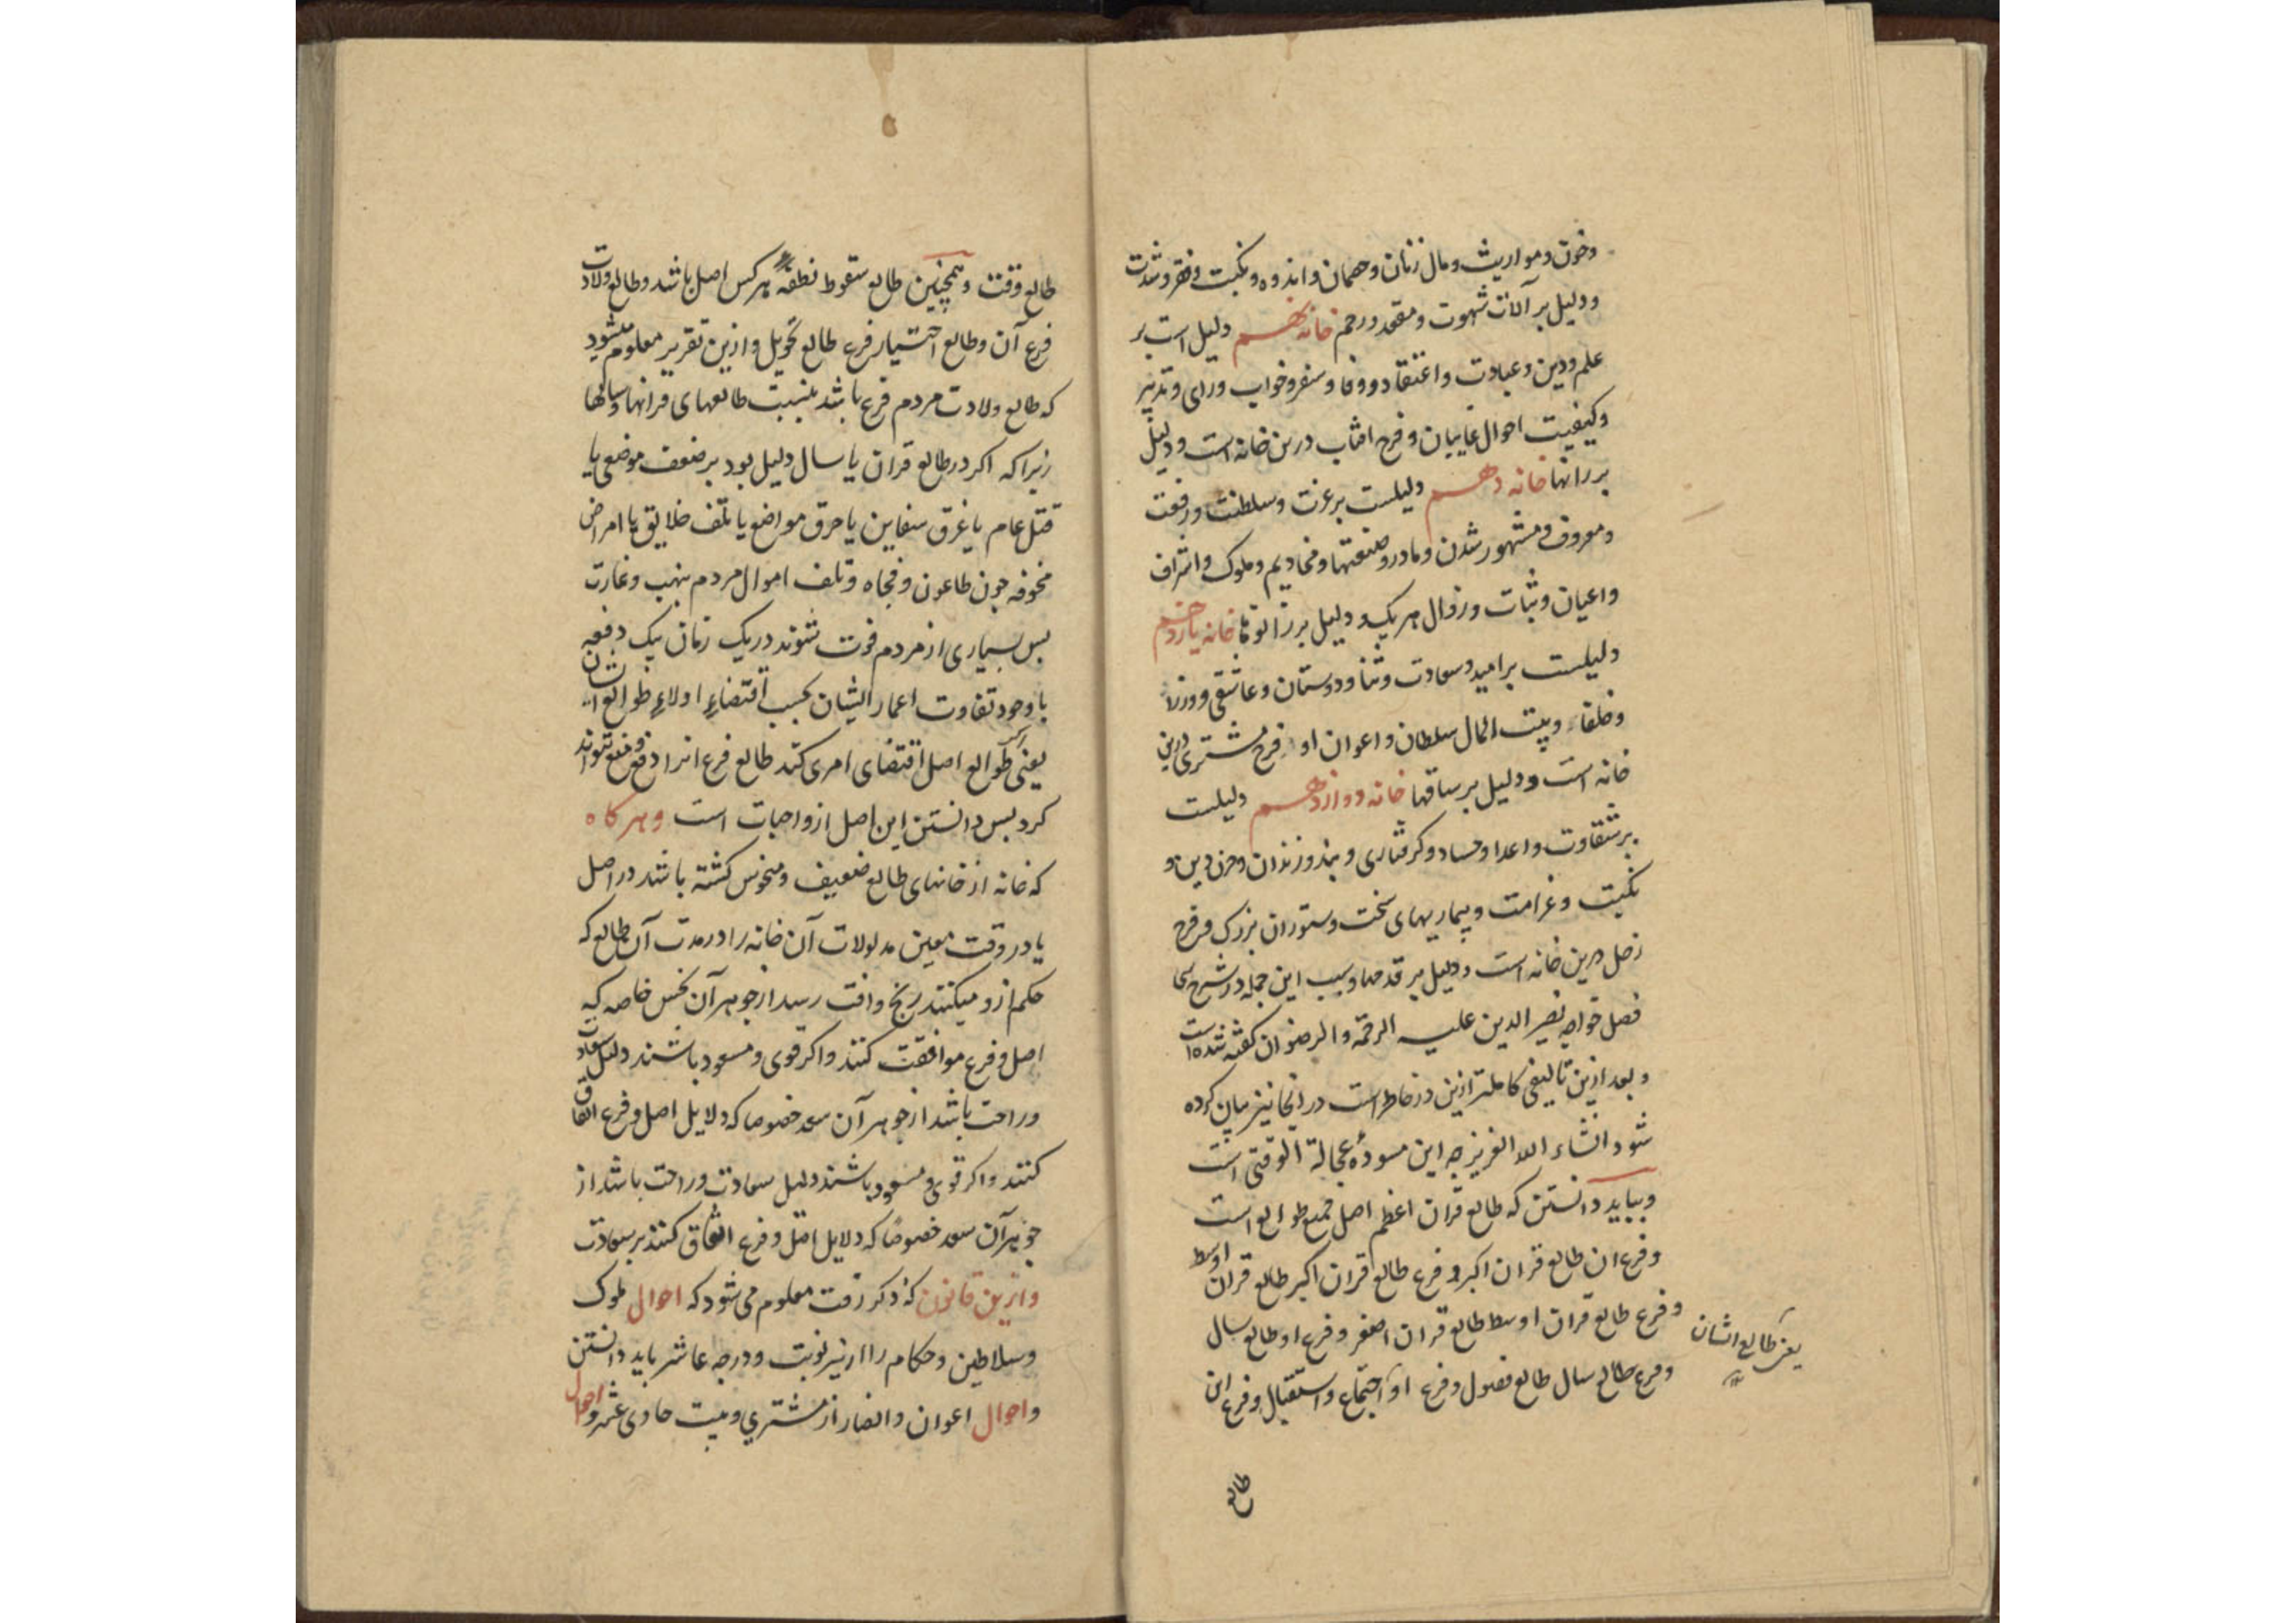 وخوف ومواریث ومال زنان وخصمان واندوه ونکبت وفقر وشدت
ودلیل بر آلات شهوت ومقعد ورحم خانه نهم دلیل است بر
علم ودین وعبادت واعتقاد ووفا وسفر وخواب ورای وتدبیر
وکیفیت احوال غایبان وفرح افتاب درین خانه است ودلیل
بر رانها خانه دهم دلیلست بر عزت وسلطنت ورفعت
ومعروف ومشهور شدن ومادر وصنعتها ومخادیم وملوک واشراف
واعیان وثبات وزوال هر یک ودلیل بر زانوها خانه یازدهم
دلیلست بر امید وسعادت وثنا ودوستان وعاشقی ووزرا
وخلفا وبیت المال سلطان واعوان او وفرح مشتری درین
خانه است ودلیل بر ساقها خانه دوازدهم دلیلست
بر شقاوت واعدا وحساد وکرفتاری وبند وزندان وحزن ودین و
نکبت وغرامت وبیماریهای سخت وستوران بزرک وفرح
زحل درین خانه است ودلیل بر قدمها وسبب این جمله در شرح سی
فصل خواجه نصیر الدین علیه الرحمة والرضوان کفته شده است
وبعد ازین تالیفی کاملتر ازین در خاطر است در انجا نیز بیان کرده
شود انشاء الله العزیز چه این مسوده عجالة الوقتی است
وبباید دانستن که طالع قران اعظم اصل جمیع طوالع است
وفرع ان طالع قران اکبر وفرع طالع قران اکبر طالع قران اوسط
وفرع طالع قران اوسط طالع قران اصغر وفرع او طالع سال
وفرع طالع سال طالع فصول وفرع او اجتماع واستقبال وفرع این
یعنی طالع ایشان
طالع
طالع وقت وهمچنین طالع سقوط نطفه هر کس اصل باشد وطالع ولادت
فرع آن وطالع اختیار فرع طالع تحویل وازین تقریر معلوم میشود
که طالع ولادت مردم فرع باشد بنسبت طالعهای قرانها وسالها
زیرا که اکر در طالع قران یا سال دلیل بود بر ضعف موضعی یا
قتل عام یا غرق سفاین یا حرق مواضع یا تلف خلایق یا امراض
مخوفه چون طاعون وفجاه وتلف اموال مردم بنهب وغارت
بس بسیاری از مردم فوت شوند در یک زمان بیک دفعه
با وجود تفاوت اعمار ایشان بحسب اقتضاء اولاء طوالع ایشان
یعنی که طوالع اصل اقتضای امری کند طالع فرع انرا دفع ومنع نتواند
کرد بس دانستن این اصل از واجبات است وهر کاه
که خانه از خانهای طالع ضعیف ومنحوس کشته باشد در اصل
یا در وقت معین مدلولات آن خانه را در مدت آن طالع که
حکم ازو میکنند رنج وافت رسد از جوهر آن نحس خاصه که
اصل وفرع موافقت کنند واکر قوی ومسعود باشند دلیل سعادت
وراحت باشد از جوهر آن سعد خصوصا که دلایل اصل وفرع اتفاق
کنند واکر قوی ومسعود باشند دلیل سعادت وراحت باشد از
جوهر آن سعد خصوصًا که دلایل اصل وفرع اتفاق کنند بر سعادت
وازین قانون که ذکر رفت معلوم می شود که احوال ملوک
وسلاطین وحکام را از نیر نوبت ودرجه عاشر باید دانستن
واحوال اعوان وانصار از مشتری وبیت حادی عشر واحوال